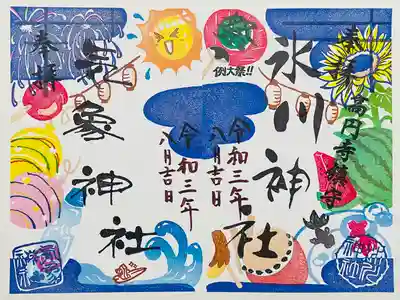 奉拝 高円寺鎮守
氷川神社
令和三年
八月吉日
例大祭!!
奉拝
気象神社
令和三年
八月吉日